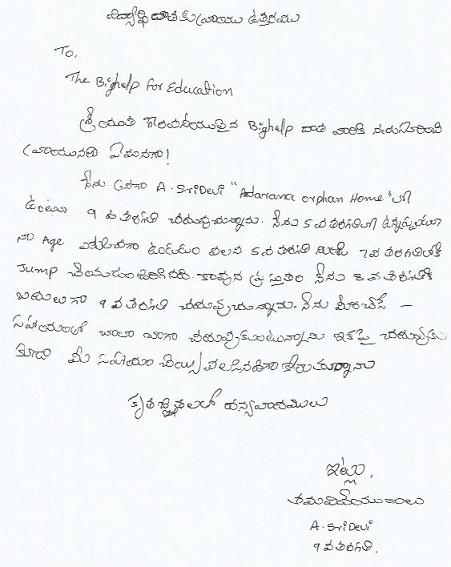 విద్యార్థి దాతకు వ్రాయు ఉత్తరము
To,
The Bighelp for Education
శ్రీయుత గౌరవనీయులైన Bighelp దాత వారికి నమస్కరించి
వ్రాయునది ఏమనగా!
నేను అనగా A. SriDevi "Adarana orphan Home" లో
ఉంటూ 9వ తరగతి చదువుచున్నాను. నేను 5వ తరగతిలో ఉన్నప్పుడు
నా Age ఎక్కువగా ఉండటం వలన 5వ తరగతి నుండి 7వ తరగతిలోకి
Jump చేయడం జరిగినది. కావున ప్రస్తుతం నేను 8వ తరగతికి
బదులుగా 9వ తరగతి చదువుచున్నాను. నేను మీరు చేసే –
సహాయంతో చాలా బాగా చదువుకుంటున్నాను ఇకపై చదువుకు
కూడా మీ సహాయం చేయవలసినదిగా కోరుతున్నాను
కృతజ్ఞతలతో ధన్యవాదములు
ఇట్లు,
తమ విధేయురాలు
A. SriDevi
9వ తరగతి.